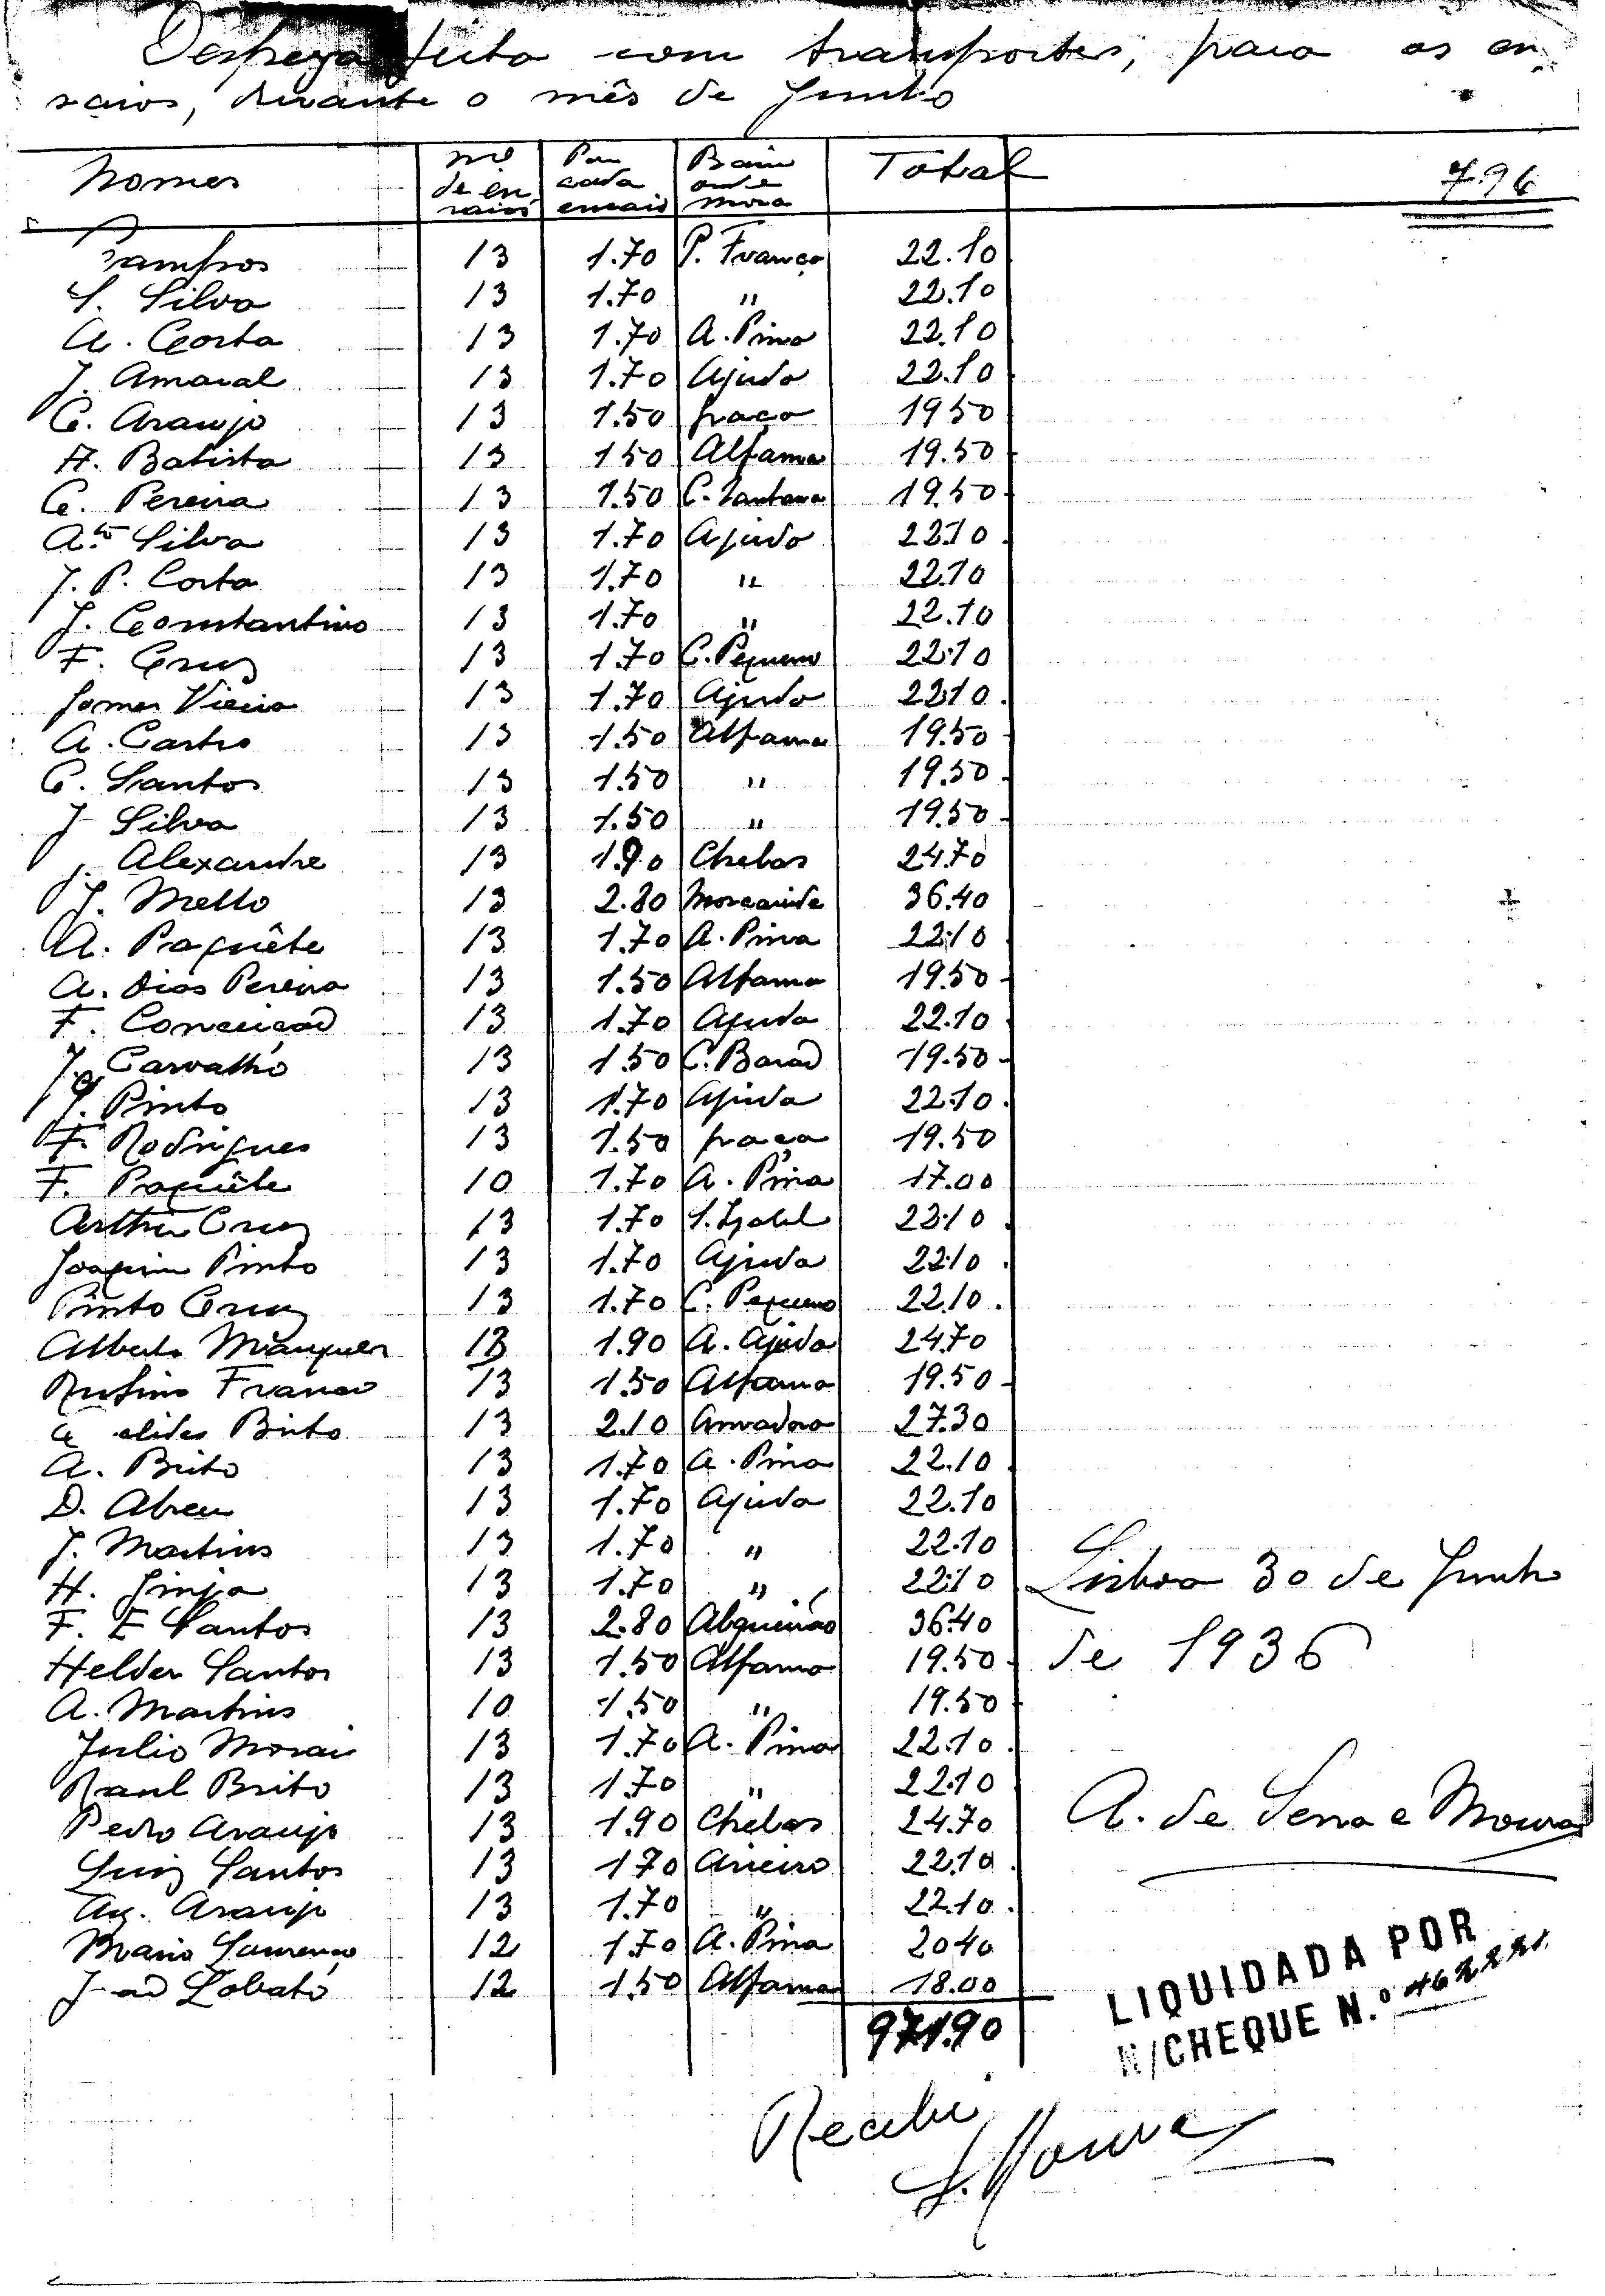 Despeza feita com transportes, para os en
saios, durante o mês de Junho
Nomes Nº de en saios Por cada ensaio Bairro onde mora Total 7.96
Campos 13 1.70 P. França 22.10
S. Silva 13 1.70 " 22.10
A. Costa 13 1.70 A. Pina 22.10
J. Amaral 13 1.70 Ajuda 22.10
C. Araujo 13 1.50 Graça 19 50
A. Batista 13 1 50 Alfama 19.50
C. Pereira 13 1.50 C. Santana 19.50
A.to Silva 13 1.70 Ajuda 22.10
J. P. Costa 13 1.70 " 22.10
J. Constantino 13 1.70 " 22.10
F. Cruz 13 1.70 C. Pequeno 22.10
Gomes Vieira 13 1.70 Ajuda 22.10
A. Castro 13 1.50 Alfama 19.50
C. Santos 13 1.50 " 19.50
J Silva 13 1.50 " 19.50
J. Alexandre 13 1.90 Chelas 24.70
J. Mello 13 2.80 Moscavide 36.40
A. Paquête 13 1.70 A. Pina 22.10
A. Dias Pereira 13 1.50 Alfama 19.50
F. Conceição 13 1.70 Ajuda 22.10
J. Carvalho 13 1.50 C. Barão 19.50
J. Pinto 13 1.70 Ajuda 22.10
F. Rodrigues 13 1.50 Graça 19.50
F. Paquête 10 1.70 A. Pina 17.00
Arthur Cruz 13 1.70 S. Izabel 22.10
Joaquim Pinto 13 1.70 Ajuda 22.10
Pinto Cruz 13 1.70 C. Pequeno 22.10
Alberto Marques 13 1.90 A. Ajuda 24.70
Rufino Franco 13 1.50 Alfama 19.50
Brito 13 2.10 Amadora 27.30
A. Brito 13 1.70 A. Pina 22.10
D. Abreu 13 1.70 Ajuda 22.10
J. Martins 13 1.70 " 22.10
H. Ginja 13 1.70 " 22.10
Lisboa 30 de Junho
F. E Santos 13 2.80 Algueirão 36.40
Helder Santos 13 1.50 Alfama 19.50
de 1936
A. Martins 10 1.50 " 19.50
Julio Morais 13 1.70 A. Pina 22.10
Raul Brito 13 1.70 " 22.10
Pedro Araujo 13 1.90 Chelas 24.70
A. de Sena e Moura
Luiz Santos 13 1 70 Arieiro 22.10
Ag. Araujo 13 1.70 " 22.10
Mario Lourenço 12 1.70 A. Pina 20 40
João Lobato 12 1.50 Alfama 18.00
971.90
LIQUIDADA POR
N/CHEQUE N.º 462221
Recebi
S. Moura